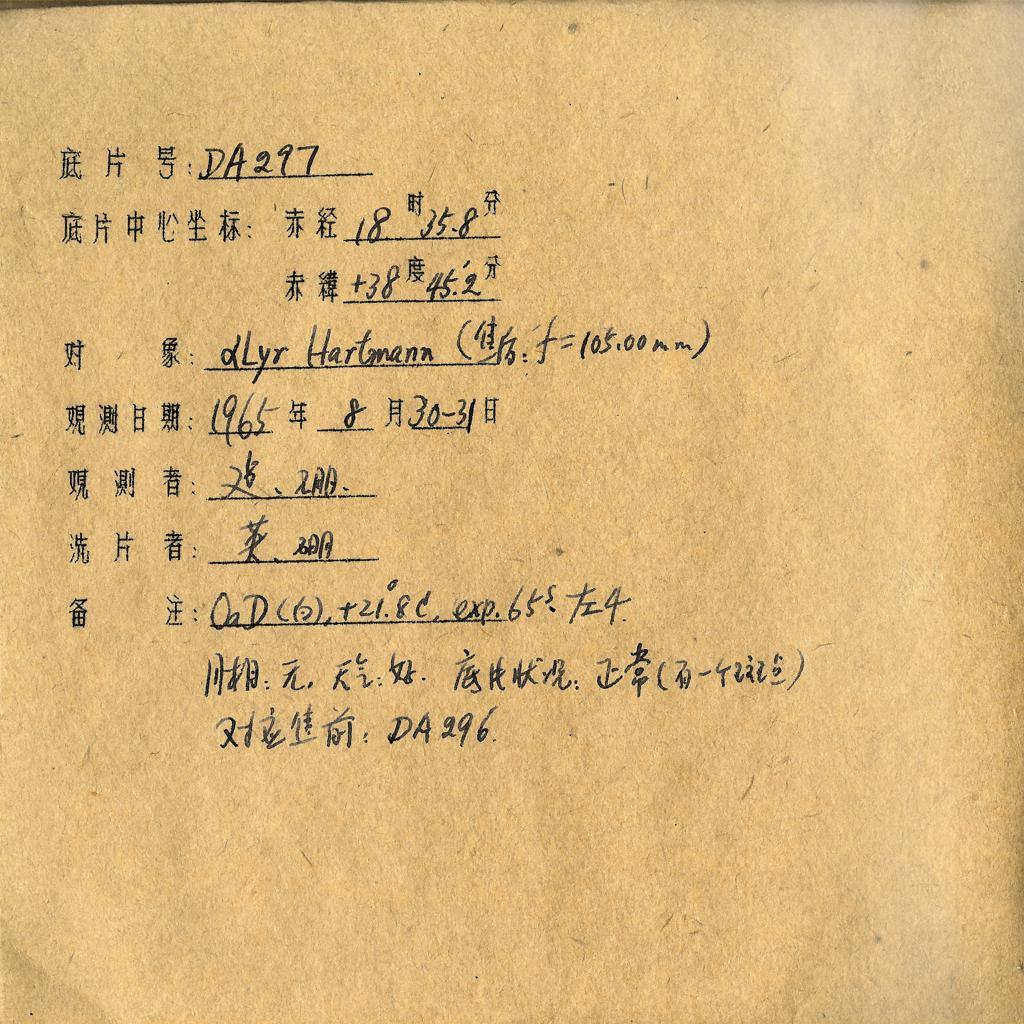 底片号: DA297
底片中心坐标: 赤经 18时 35.8分
赤緯 +38度 45.2分
对象: αLyr Hartmann (焦后: f=105.00mm)
观测日期: 1965年 8月 30-31日
观测者:
洗片者: 英、
备注: OaD(白), +21.8℃, exp. 65s. 左4.
月相: 无. 天气: 好. 底片状况: 正常(有一个斑点)
对应焦前: DA296.